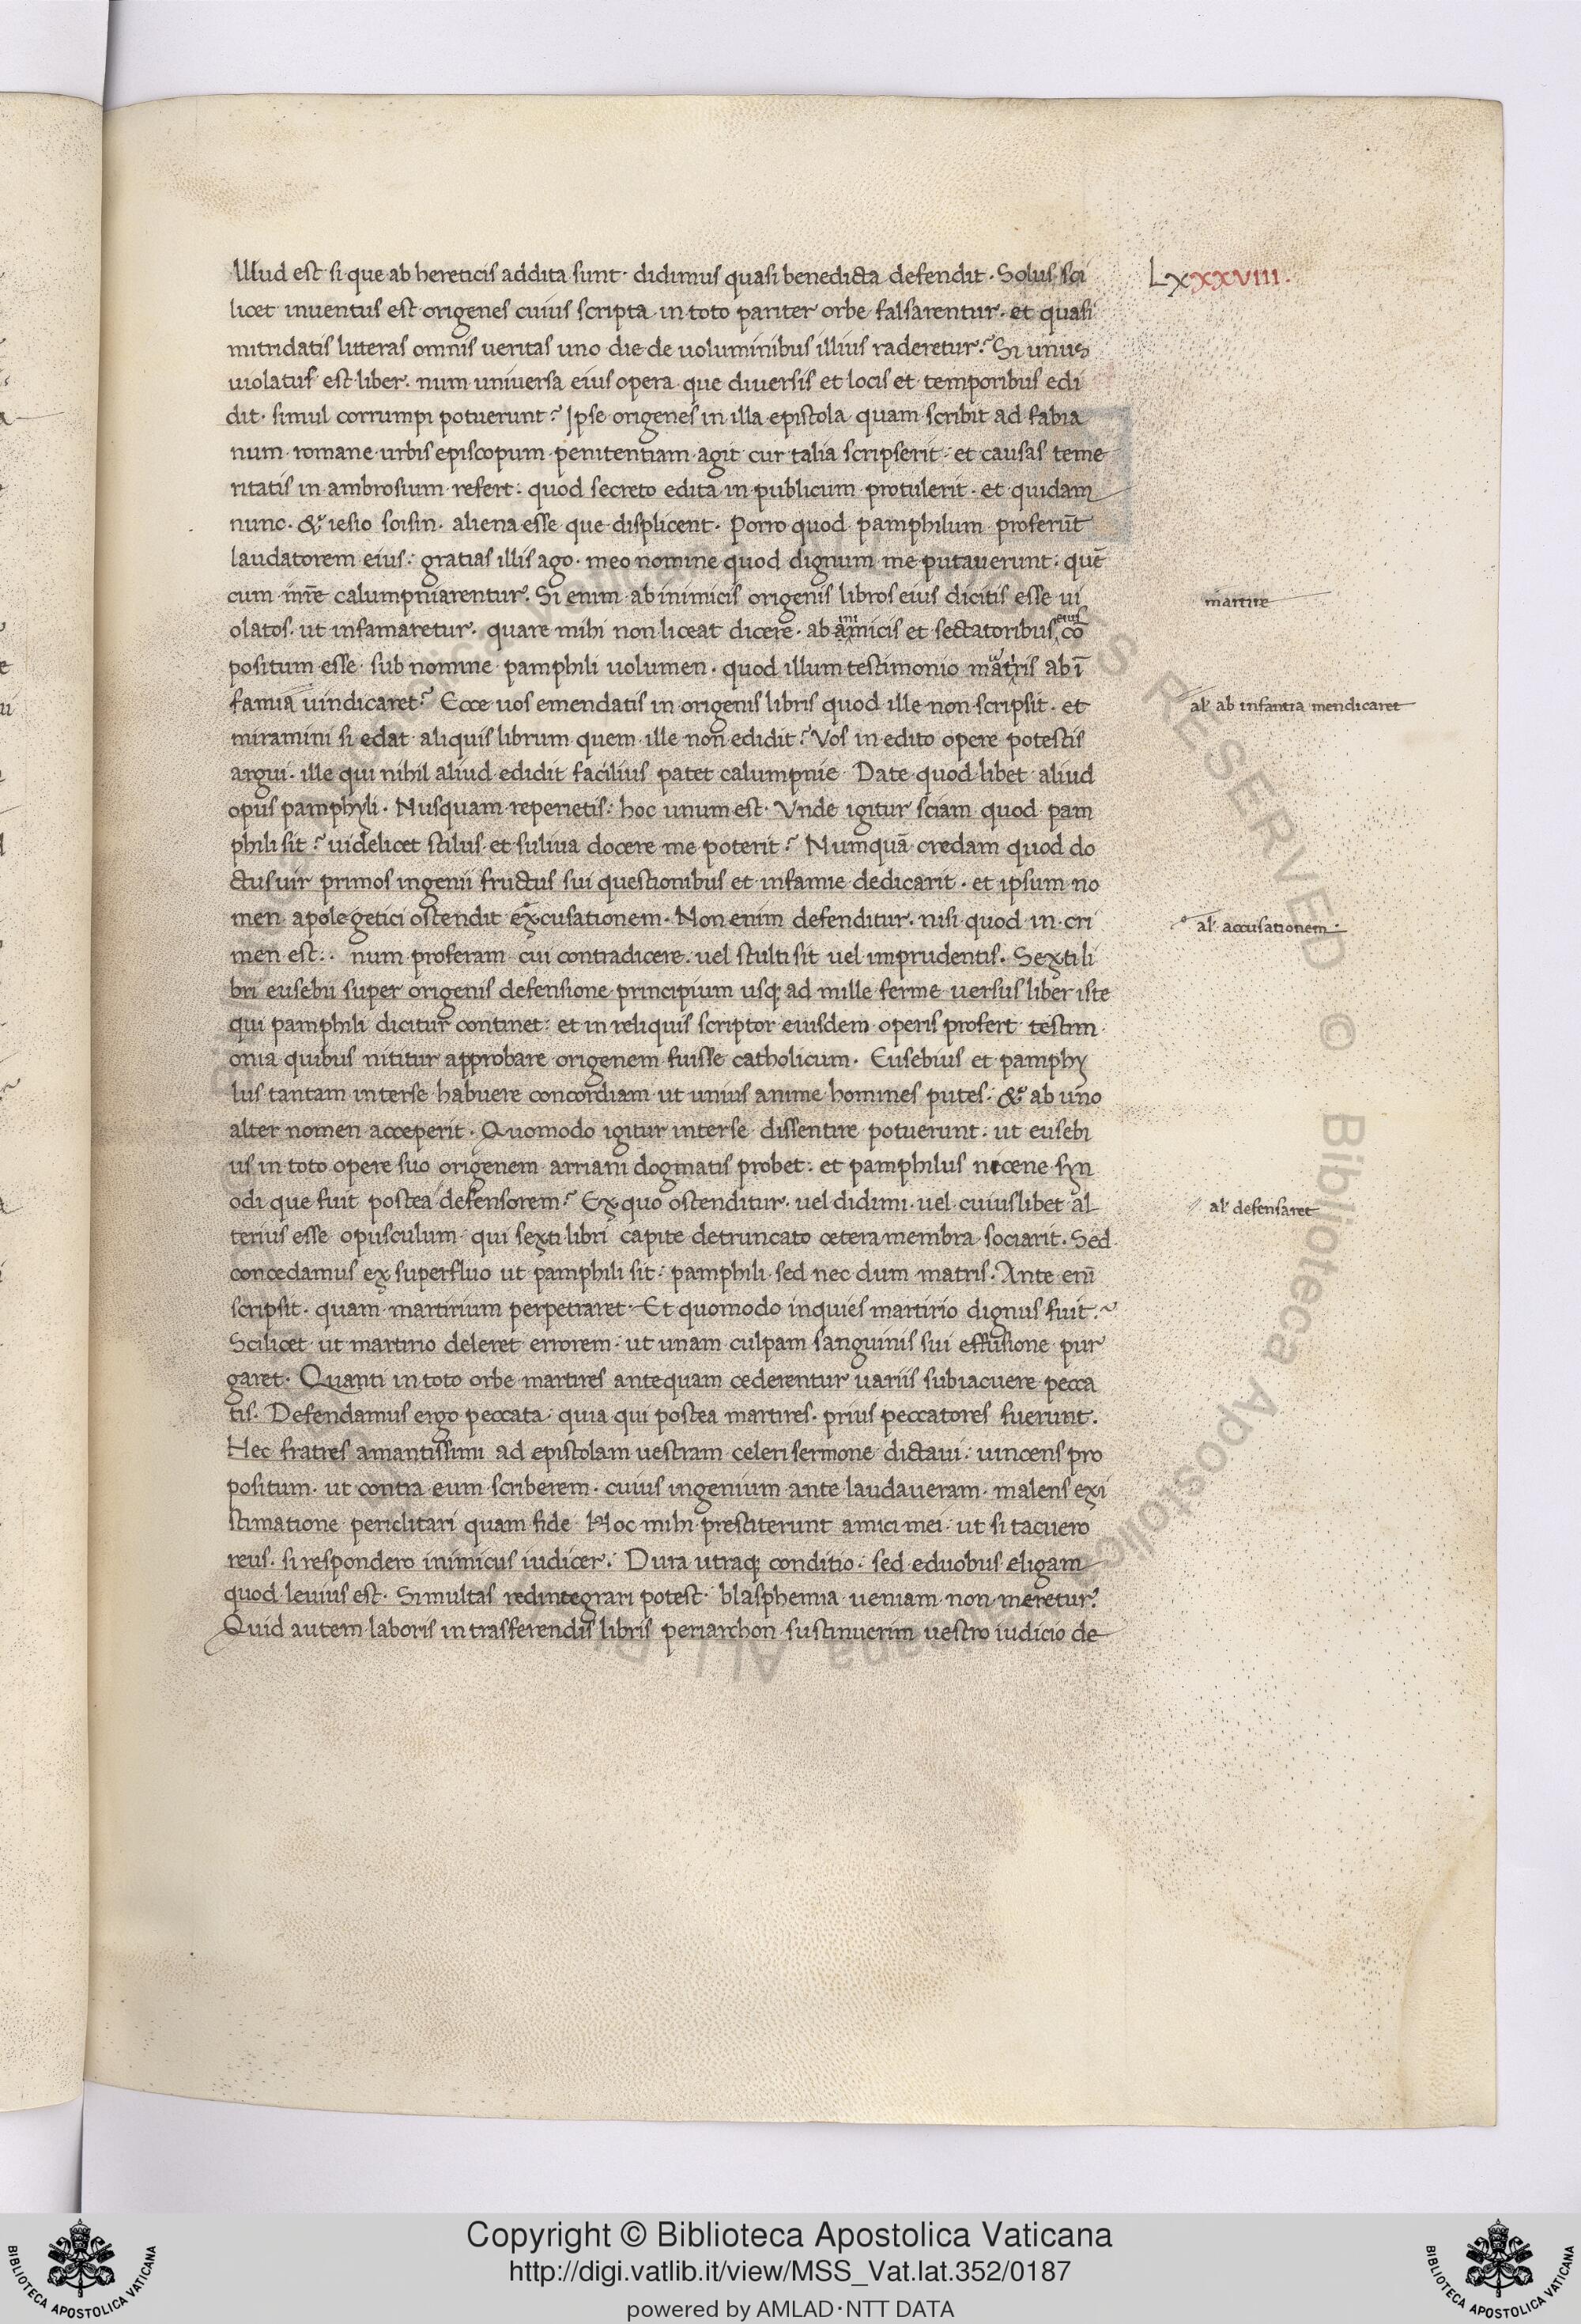 Illud est si que ab hereticis addita sunt· didimus quasi benedicta defendit· Solus sci
LXXXXVIII.
licet inventus est origenes cuius scripta in toto pariter orbe falsarentur· et quasi
mitridatis litteras omnis veritas uno die de voluminibus illius raderetur? Si unus
violatus est liber· num universa eius opera que diversis et locis et temporibus edi
dit· simul corrumpi potuerunt? Ipse origenes in illa epistola quam scribit ad fabia
num romane urbis episcopum penitentiam agit cur talia scripserit: et causas teme
ritatis in ambrosium refert: quod secreto edita in publicum protulerit· et quidam
nunc· & iesio soisin· aliena esse que displicent· Porro quod pamphilum proferūt
laudatorem eius: gratias illis ago· meo nomine quod dignum me putaverunt: quē
cum mr̄e calumpniarentur. Si enim ab inimicis origenis libros eius dicitis esse vi
martire
olatos· ut infamaretur· quare mihi non liceat dicere· ab amicis et sectatoribus eius cō
positum esse sub nomine pamphili volumen· quod illum testimonio matris ab ī
famia vindicaret? Ecce vos emendatis in origenis libris quod ille non scripsit· et
al' ab infantia mendicaret
miramini si edat aliquis librum quem ille non edidit? Vos in edito opere potestis
argui· ille qui nihil aliud edidit facilius patet calumpnie Date quod libet aliud
opus pamphyli· Nusquam reperietis: hoc unum est· Vnde igitur sciam quod pam
phili sit? videlicet stilus et suliva docere me poterit? Numquā credam quod do
ctus vir primos ingenii fructus sui questionibus et infamie dedicarit· et ipsum no
men apolegetici ostendit excusationem· Non enim defenditur· nisi quod in cri
al' accusationem·
men est: num proferam cui contradicere· vel stulti sit vel imprudentis. Sexti li
bri eusebii super origenis defensione principium usq; ad mille ferme versus liber iste
qui pamphili dicitur continet: et in reliquis scriptor eiusdem operis profert testim
onia quibus nititur approbare origenem fuisse catholicum· Eusebius et pamphy
lus tantam inter se habuere concordiam ut unius anime homines putes: & ab uno
alter nomen acceperit· Quomodo igitur inter se dissentire potuerunt· ut eusebi
us in toto opere suo origenem arriani dogmatis probet: et pamphilus nicene syn
odi que fuit postea defensorem? Ex quo ostenditur· vel didimi· vel cuius libet al
al' defensaret
terius esse opusculum qui sexti libri capite detruncato cetera membra sociarit· Sed
concedamus ex superfluo ut pamphili sit: pamphili sed nec dum matris· Ante enī
scripsit· quam martirium perpetraret· Et quomodo inquies martirio dignus fuit?
Scilicet ut martirio deleret errorem: ut unam culpam sanguinis sui effusione pur
garet· Quanti in toto orbe martires ante quam cederentur variis subiacuere pecca
tis· Defendamus ergo peccata: quia qui postea martires· prius peccatores fuerunt·
Hec fratres amantissimi ad epistolam vestram celeri sermone dictavi: vincens pro
positum· ut contra eum scriberem· cuius ingenium ante laudaveram· malens exi
stimatione periclitari quam fide Hoc mihi prestiterunt amici mei· ut si tacuero
reus· si respondero inimicus iudicer: Dura utraq; conditio: sed e duobus eligam
quod levius est· Simultas redintegrari potest: blasphemia veniam non meretur?
Quid autem laboris in trasferendis libris periarchon sustinuerim vestro iudicio de
Copyright © Biblioteca Apostolica Vaticana
http://digi.vatlib.it/view/MSS_Vat.lat.352/0187
powered by AMLAD·NTT DATA